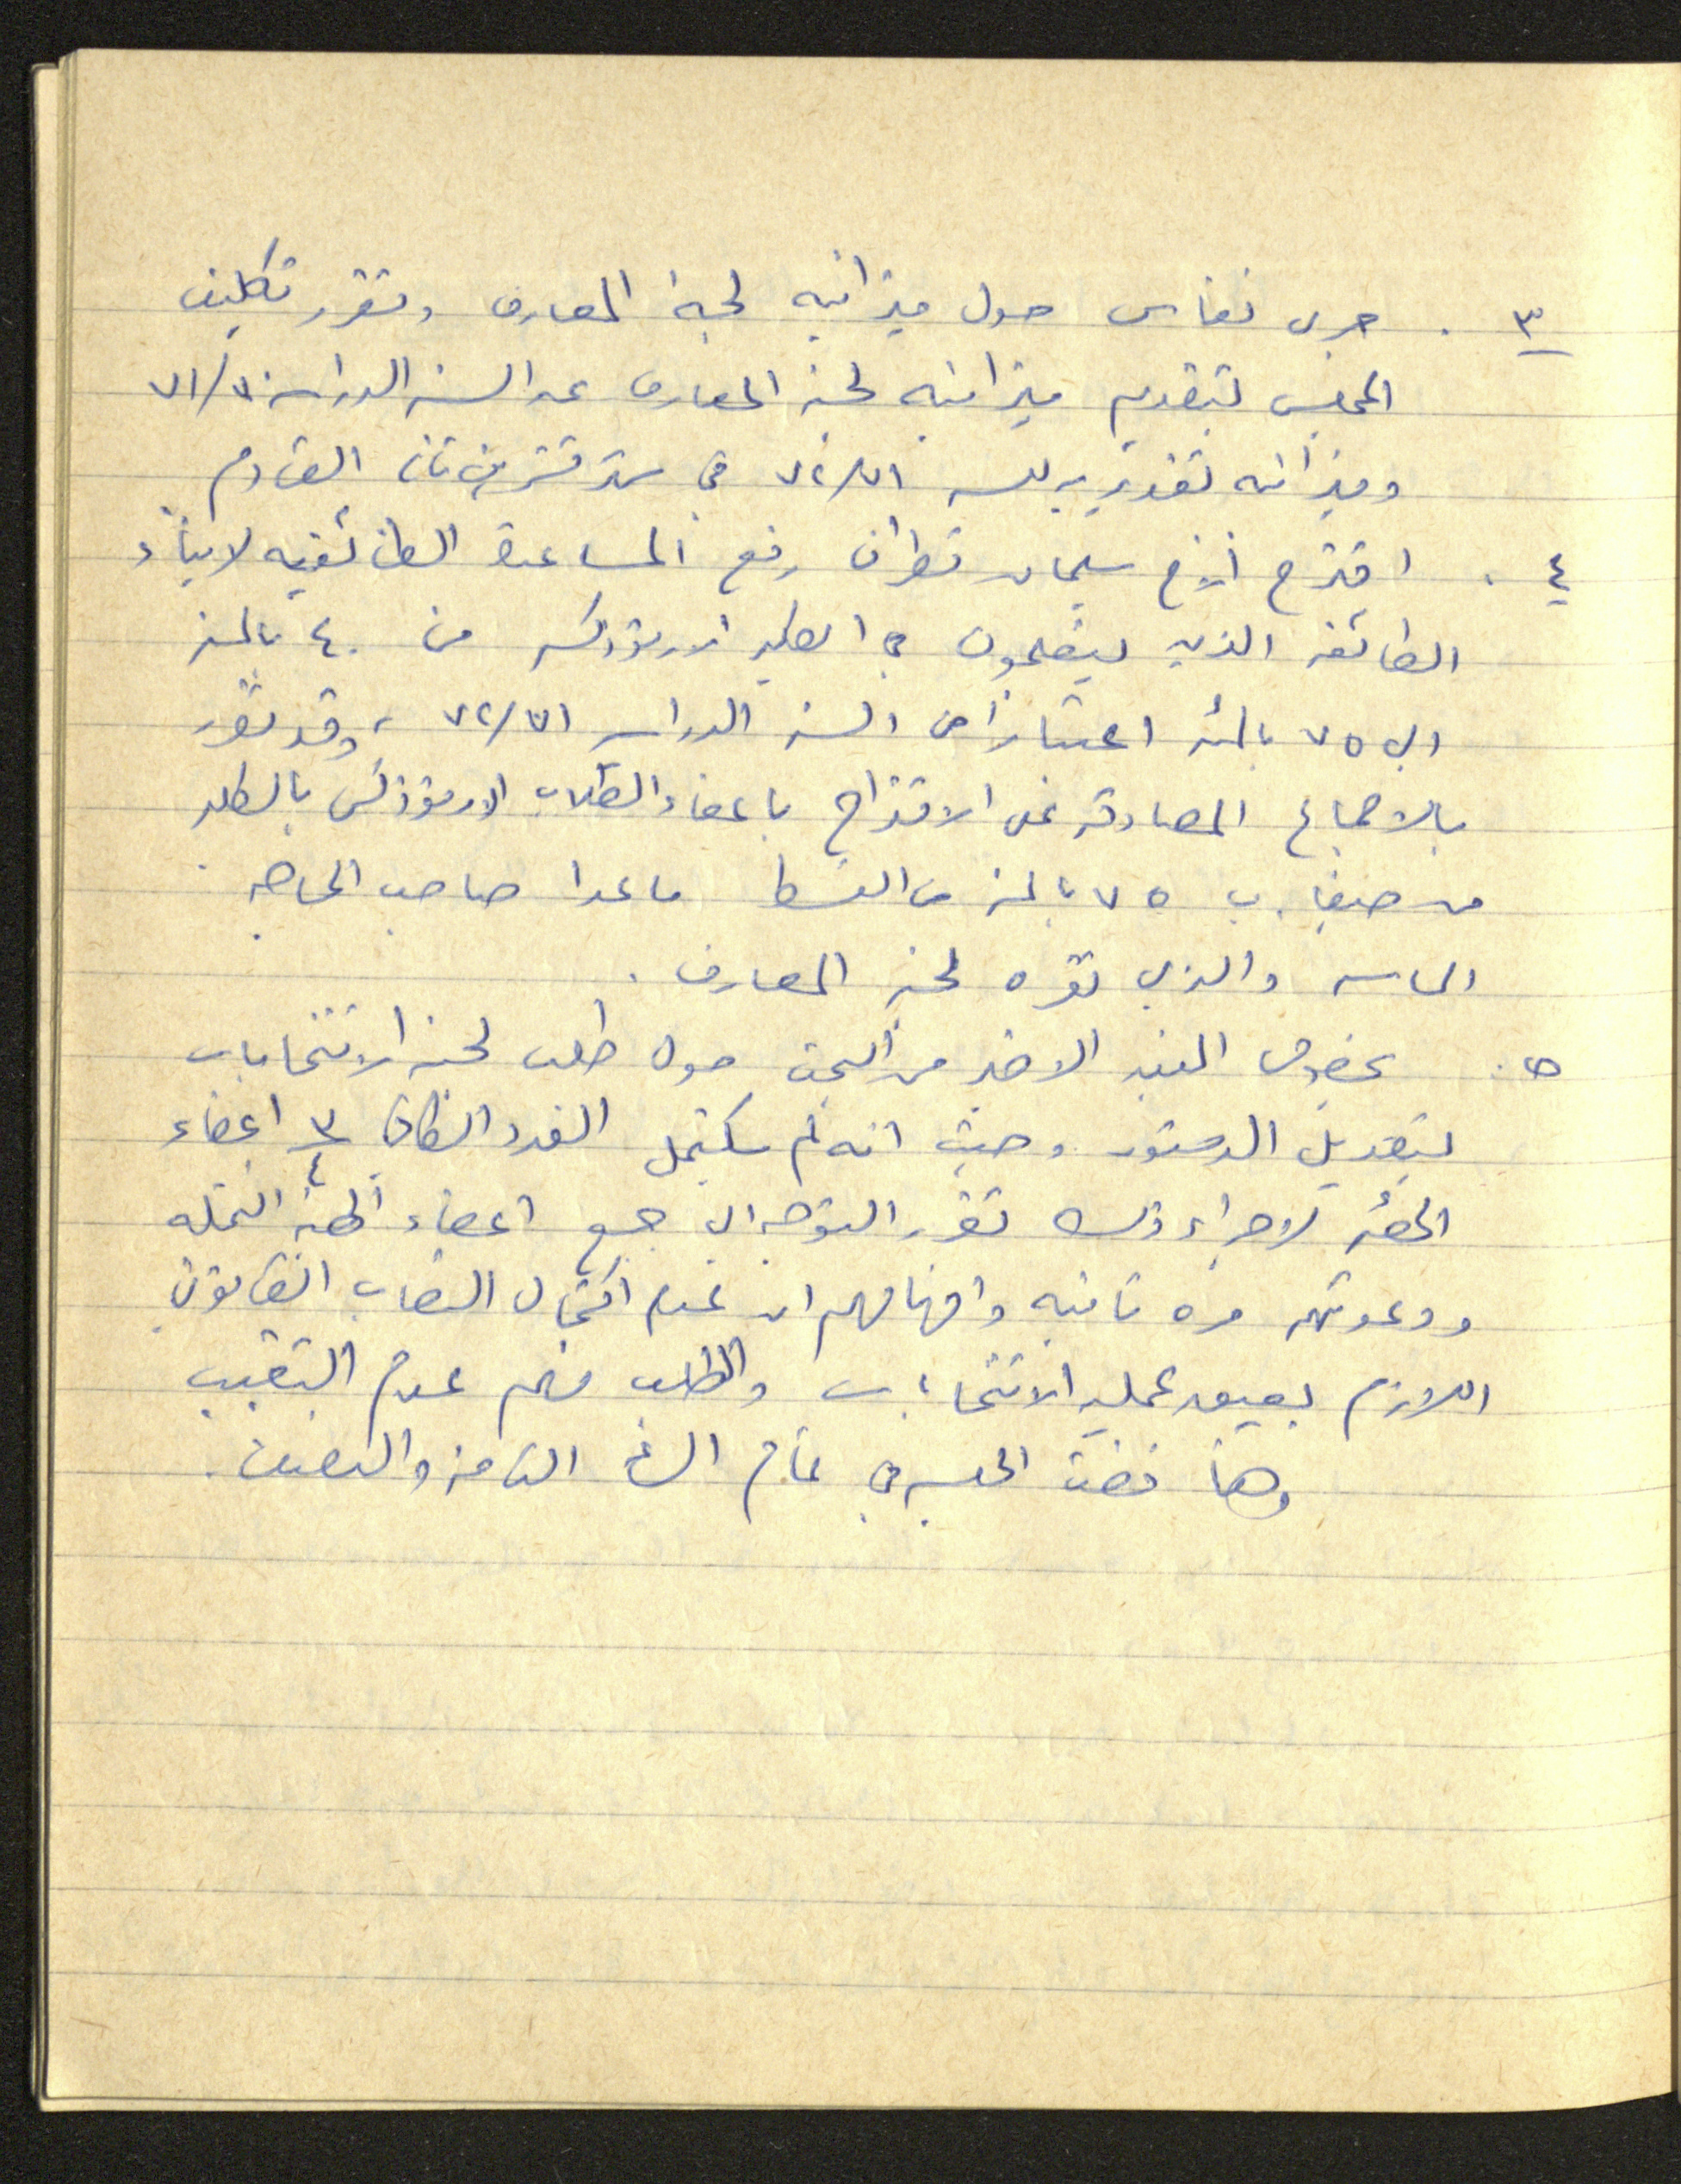 ٣ . جرى نقاش حول ميزانيه لجنة المعارف وتقرر تكليف
المجلس لتقديم ميزانيه لجنة المعارف عن السنه الدراسيه ٧١/٧٠
وميزانيه تقديريه لسنه ٧٢/٧١ في شهر تشرين ثاني القادم
٤ . اقترح الاخ سليمان قطران رفع المساعدة الطائفيه لابناء
الطائفه الذين يتعلمون في الكليه الارثوذكسيه من ٤٠ بالمئه
الى ٧٥ بالمئه اعتبارا من السنه الدراسيه ٧٢/٧١ ، وقد تقرر
بالاجماع المصادقه على الاقتراح باعفاء الطلاب الارثوذكس بالكليه
من حيفا ب ٧٥ بالمئه من القسط ما عدا صاحب الحاجه
الماسه والذي تقره لجنة المعارف .
٥ . بخصوص البند الاخير من البحث حول طلب لجنة الانتخابات
لتعديل الدستور وحيث انه لم يكتمل العدد الكافي ٣/٤ اعضاء
الهيئه لاجراء ذلك تقرر التوجه الى جميع اعضاء الهيئه التمثليه
ودعوتهم مره ثانيه وافهامهم ان عدم اكتمال النصاب القانوني
اللازم يعيق عملية الانتخابات والطلب منهم عدم التغيب
وهنا فضت الجلسه في تمام الساعه الثامنه والنصف .